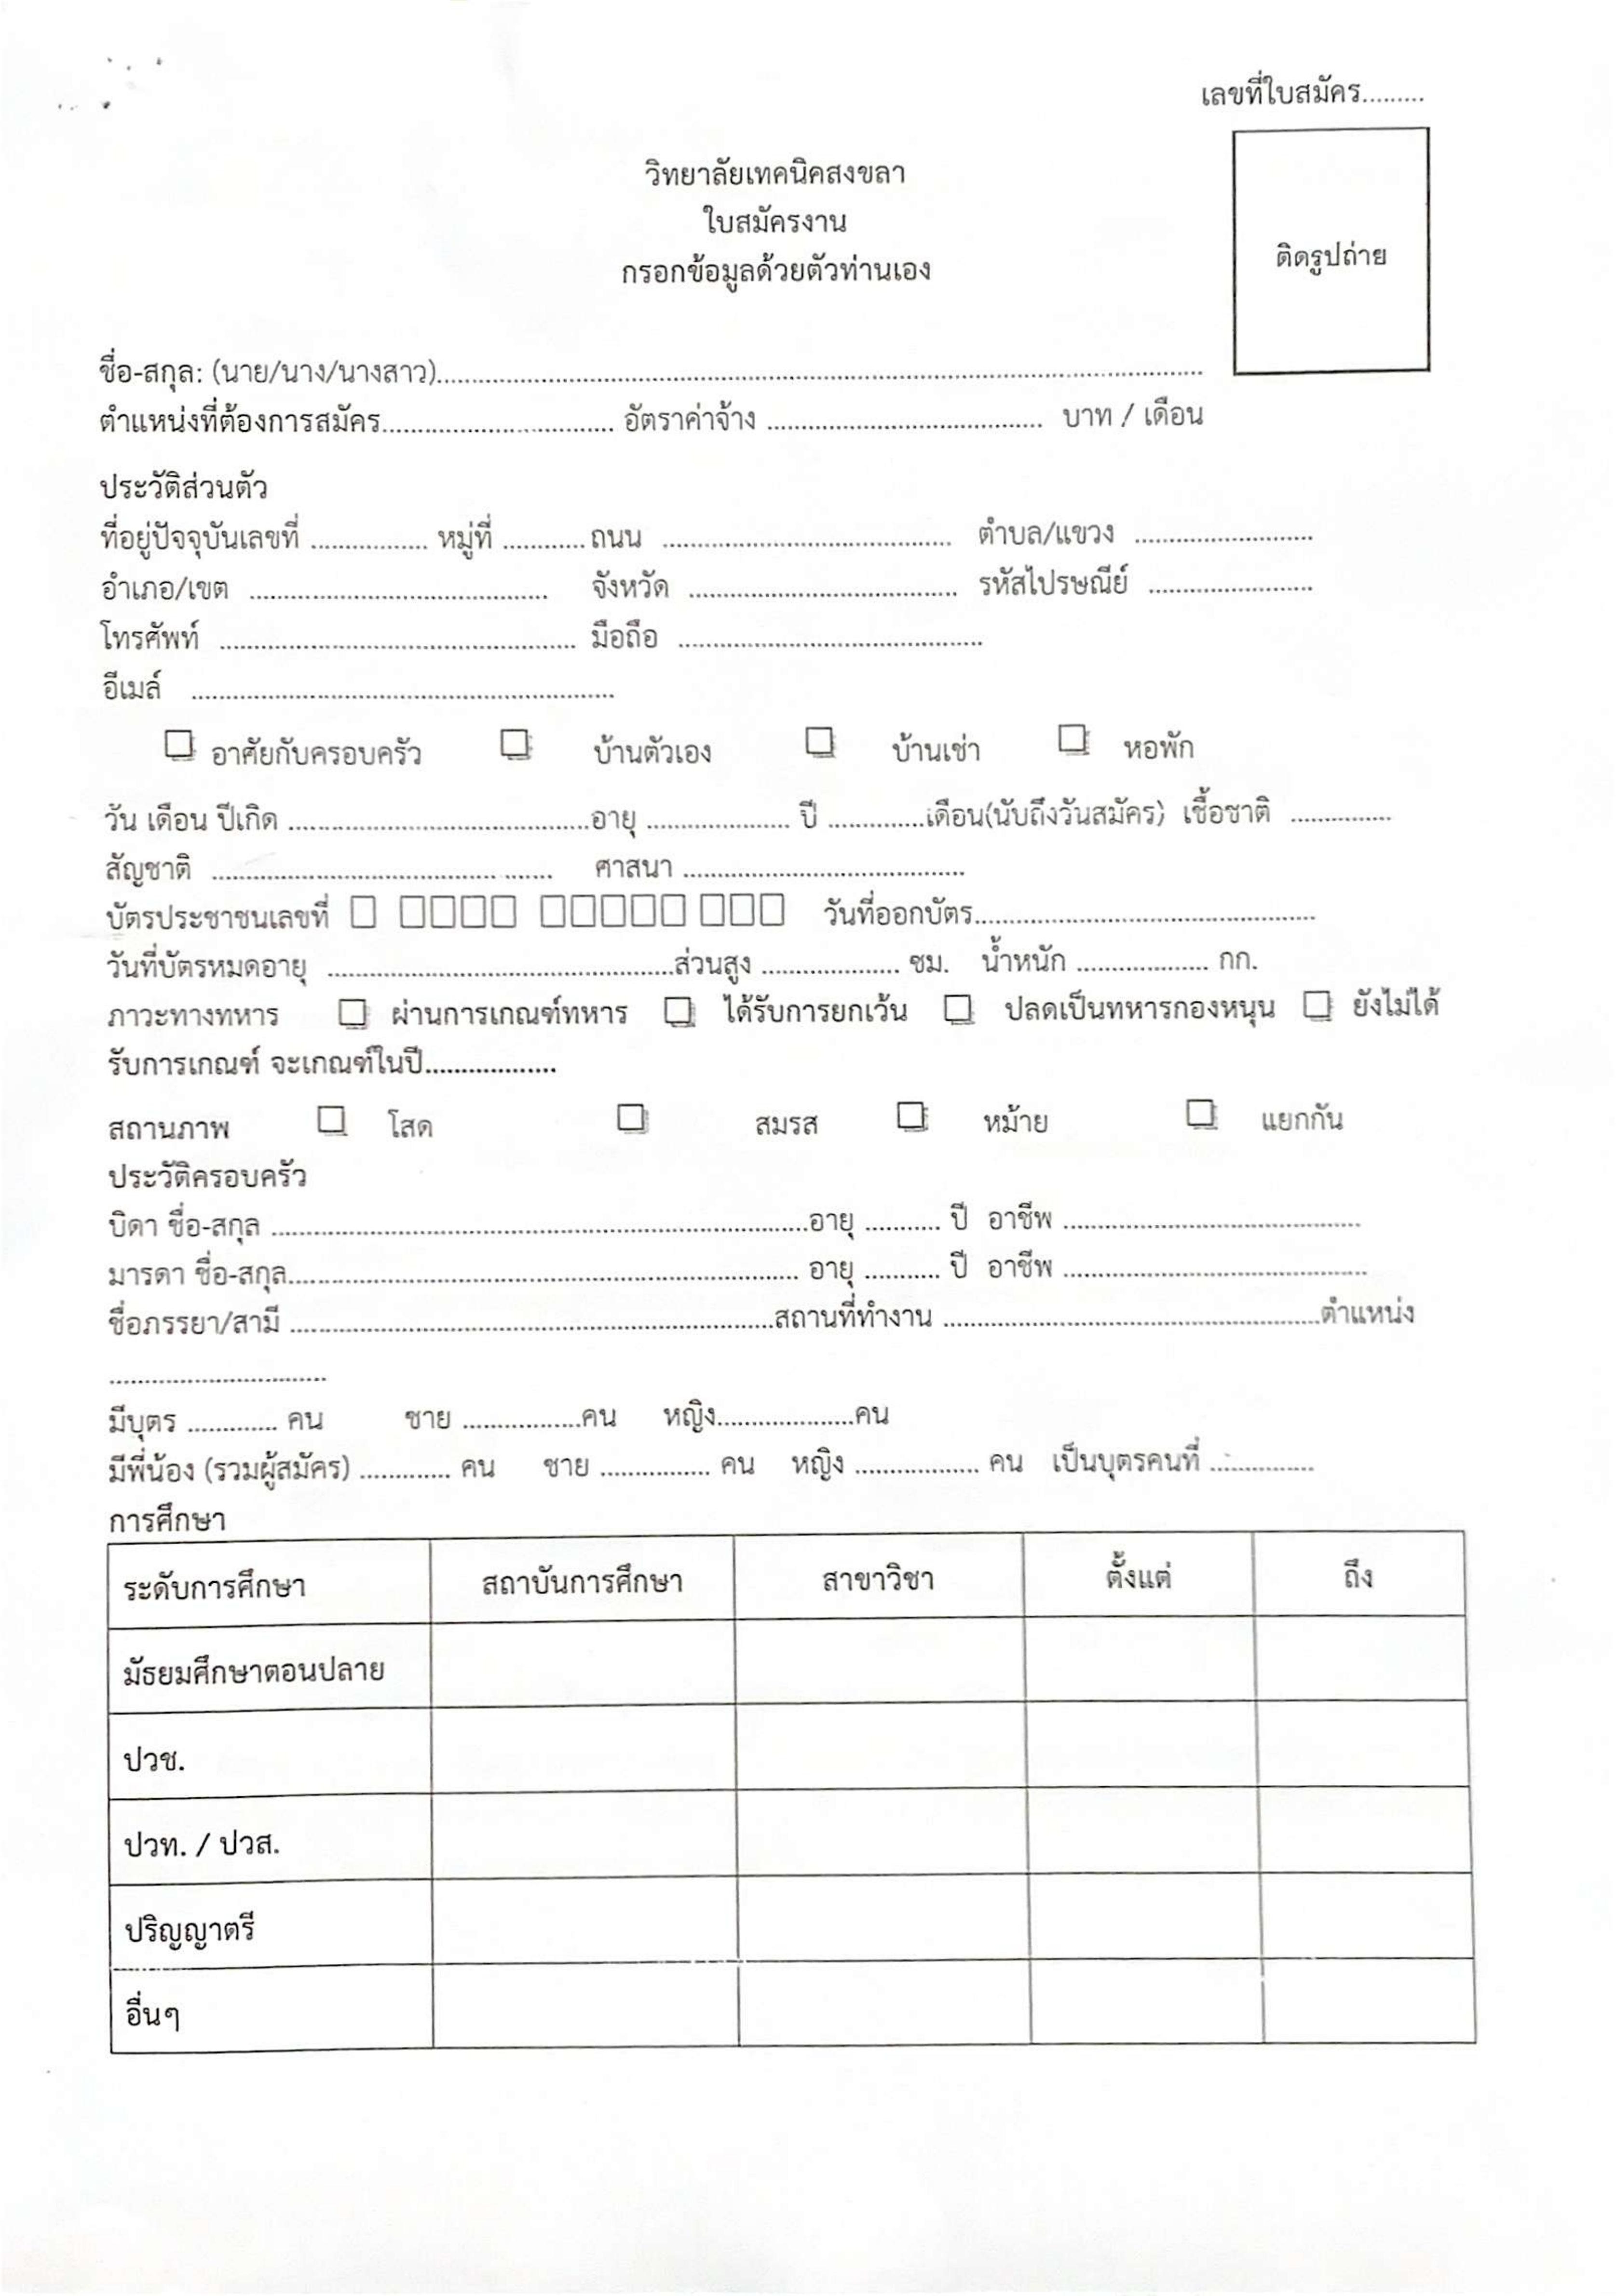 เลขที่ใบสมัคร.........
วิทยาลัยเทคนิคสงขลา
ใบสมัครงาน
กรอกข้อมูลด้วยตัวท่านเอง
ติดรูปถ่าย
ชื่อ-สกุล: (นาย/นาง/นางสาว)..........................................................................................
ตำแหน่งที่ต้องการสมัคร.................................. อัตราค่าจ้าง ........................................ บาท / เดือน
ประวัติส่วนตัว
ที่อยู่ปัจจุบันเลขที่ ................. หมู่ที่ ............ ถนน .......................................... ตำบล/แขวง ..........................
อำเภอ/เขต ............................................ จังหวัด ....................................... รหัสไปรษณีย์ ........................
โทรศัพท์ .................................................... มือถือ ............................................
อีเมล์ ..............................................................
☐ อาศัยกับครอบครัว ☐ บ้านตัวเอง ☐ บ้านเช่า ☐ หอพัก
วัน เดือน ปีเกิด ............................................อายุ ..................... ปี ..............เดือน(นับถึงวันสมัคร) เชื้อชาติ ...............
สัญชาติ .................................................. ศาสนา .........................................
บัตรประชาชนเลขที่ ☐ ☐☐☐☐ ☐☐☐☐☐ ☐☐☐ วันที่ออกบัตร..................................................
วันที่บัตรหมดอายุ ...................................................ส่วนสูง .................... ซม. น้ำหนัก ................... กก.
ภาวะทางทหาร ☐ ผ่านการเกณฑ์ทหาร ☐ ได้รับการยกเว้น ☐ ปลดเป็นทหารกองหนุน ☐ ยังไม่ได้
รับการเกณฑ์ จะเกณฑ์ในปี..................
สถานภาพ ☐ โสด ☐ สมรส ☐ หม้าย ☐ แยกกัน
ประวัติครอบครัว
บิดา ชื่อ-สกุล ...............................................................................อายุ ........... ปี อาชีพ ............................................
มารดา ชื่อ-สกุล........................................................................... อายุ ........... ปี อาชีพ .............................................
ชื่อภรรยา/สามี .......................................................................สถานที่ทำงาน .......................................................ตำแหน่ง
................................
มีบุตร ............. คน ชาย .................คน หญิง....................คน
มีพี่น้อง (รวมผู้สมัคร) ............. คน ชาย ................ คน หญิง .................. คน เป็นบุตรคนที่ ...............
การศึกษา
ระดับการศึกษา สถาบันการศึกษา สาขาวิชา ตั้งแต่ ถึง
มัธยมศึกษาตอนปลาย
ปวช.
ปวท. / ปวส.
ปริญญาตรี
อื่นๆ